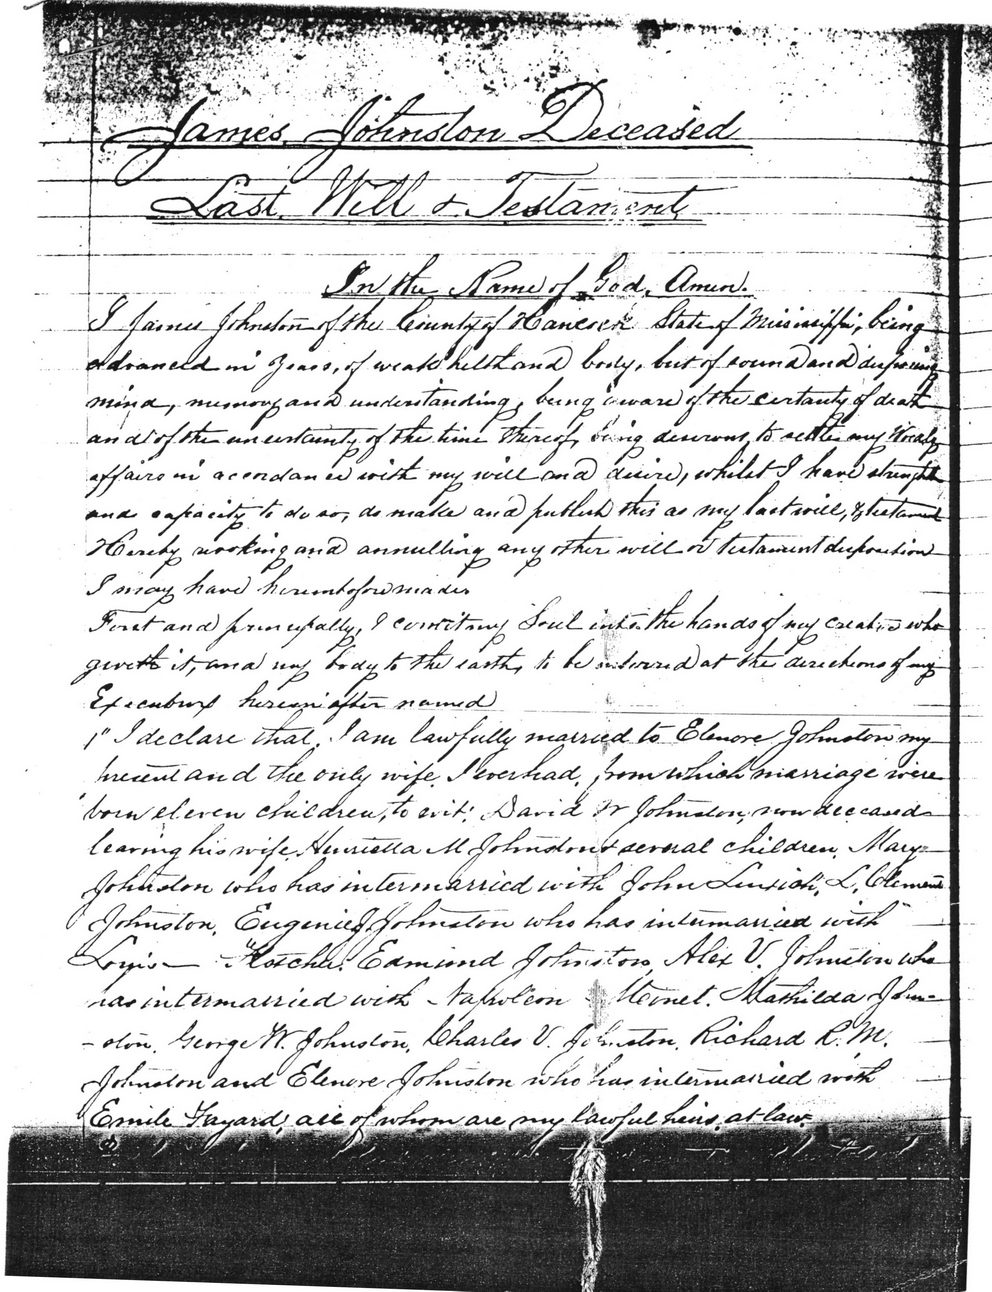 James Johnston Deceased
Last Will & Testament
In the Name of God, Amen.
I James Johnston of the County of Hancock State of Mississippi, being
advanced in years, of weak helth and body, but of sound and disposing
mind, memory and understanding, being aware of the certainty of death
and of the uncertainty of the time thereof, being desirous to settle my
affairs in accordance with my will and desire, whilst I have strength
and capacity to do so, do make and publish this as my last will, & testament
Hereby revoking and annulling any other will or testament disposition
I may have heretofore made.
First and principally, I comit my Soul into the hands of my creator who
giveth it, and my body to the earth, to be interred at the directions of my
Executors herein after named
1st I declare that I am lawfully married to Elenore Johnston my
present and the only wife I ever had, from which marriage were
born eleven children, to wit: David W Johnston, now deceased
leaving his wife Henrietta M Johnston & several children, Mary
Johnston who has intermarried with John L. Clement
Johnston, Eugenie J. Johnston who has intermarried with
Louis Edmund Johnston, Alex V. Johnston who
has intermarried with Napoleon Monet. Mathilda John-
-ston, George W. Johnston, Charles V. Johnston, Richard R. M.
Johnston and Elenore Johnston who has intermarried with
Emile Fayard; all of whom are my lawful heirs, at law.